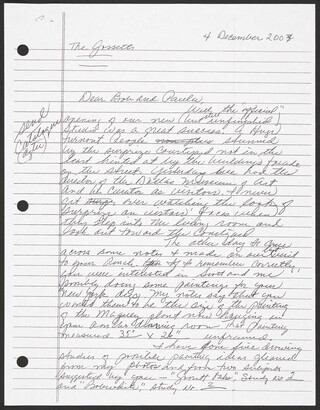 4 December 2003
The Gossetts
Dear Bob and Paula,
Well, the "official"
opening of our new (but still unfinished)
Studio was a great success! A huge
stunned
by the surprise courtyard not in the
least hinted at by the building's facade
on the street. Yesterday we had the
Director of the Dallas Museum of Art
and he Curator as visitors. I never
get over watching the looks of
surprise on visitors' faces when
they step into the living room and
look out toward the courtyard.
The other day I came
across some notes I made on our visit
to your ranch. If I remember correctly,
you were interested in Scott and me
possibly doing some paintings for your
New York
wanted them to be the size of the painting
of the Maguey plant now hanging in
your dining room. That painting
measured 35" X 26" unframed.
I have some fine drawing
studies of possible painting ideas gleaned
from my photos and from two
suggested by you — Study No 2
and Study No
send
catalogue
later